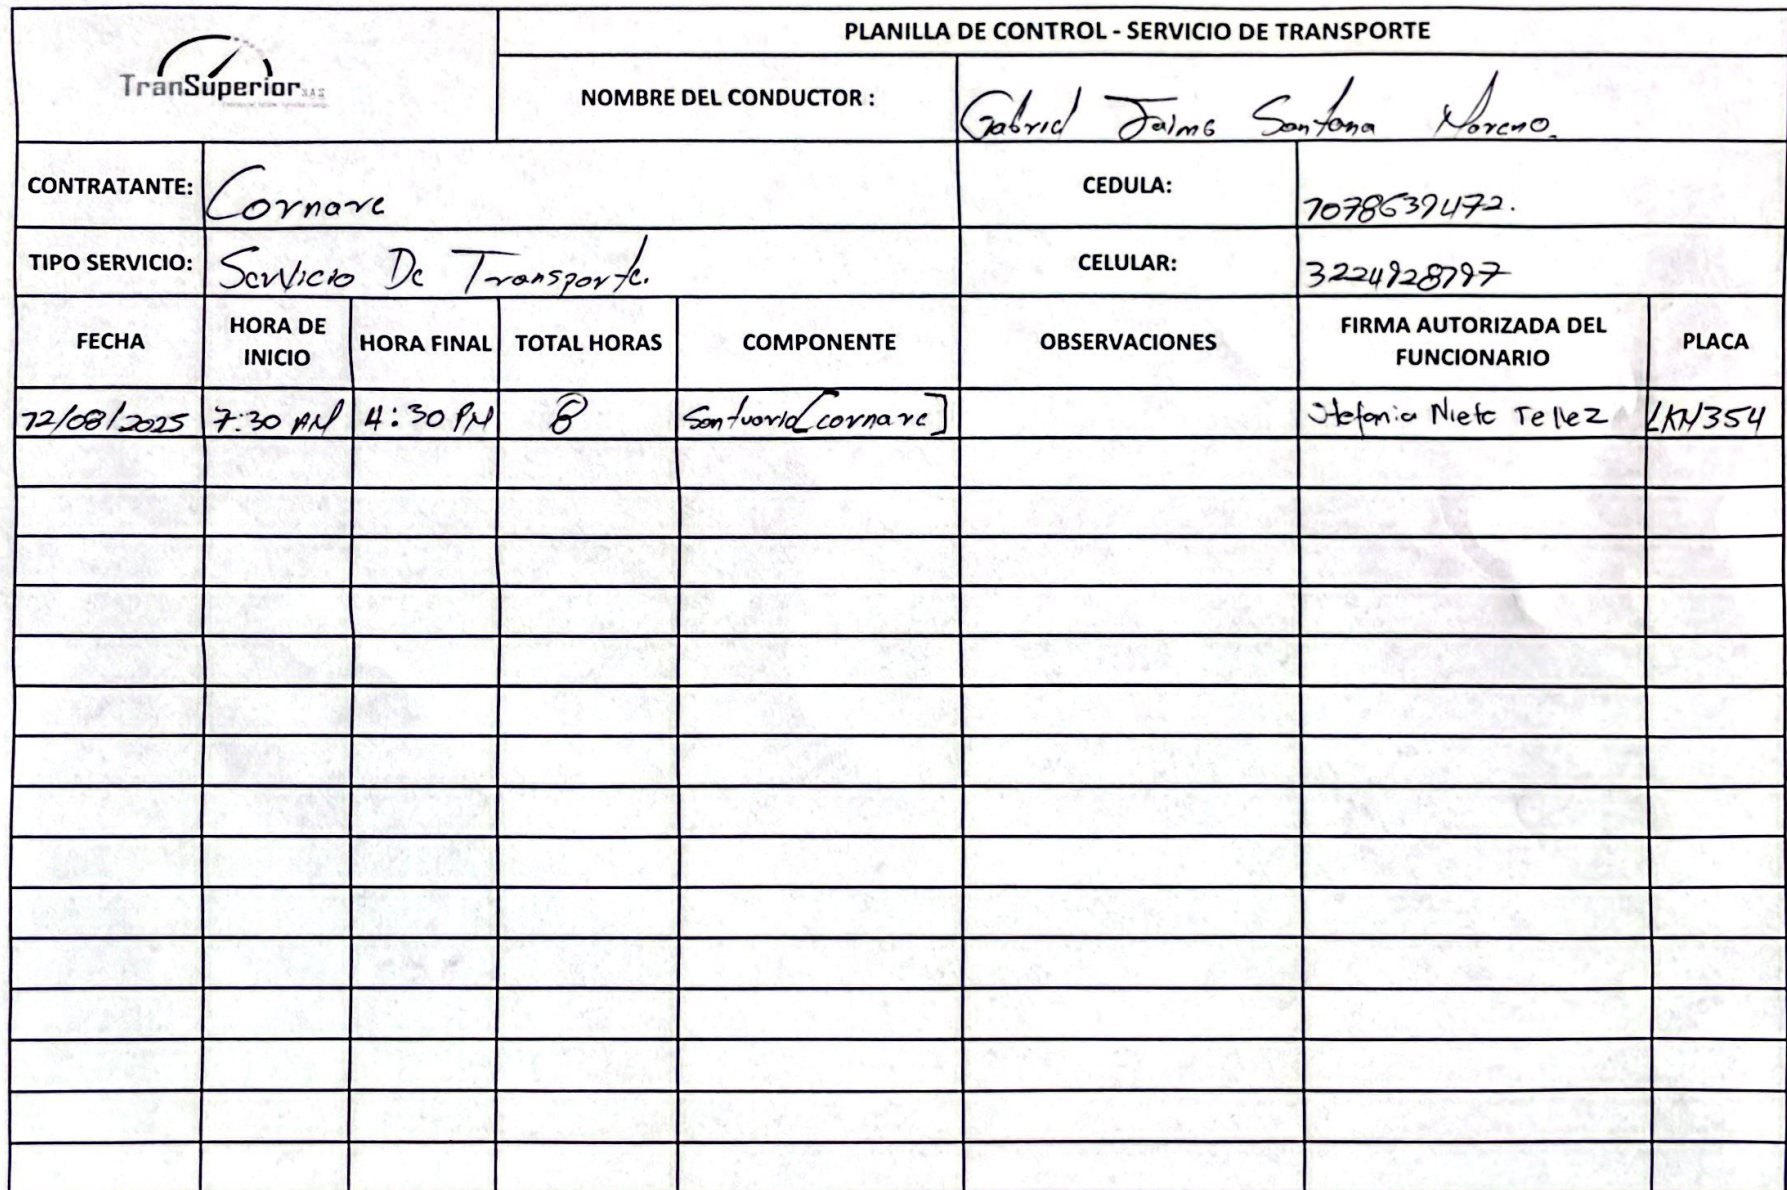 PLANILLA DE CONTROL - SERVICIO DE TRANSPORTE
TranSuperior S.A.S
NOMBRE DEL CONDUCTOR : Gabriel Jaime Santana Moreno.
CONTRATANTE: Cornare CEDULA:
TIPO SERVICIO: Servicio De Transporte. CELULAR:
FECHA HORA DE INICIO HORA FINAL TOTAL HORAS COMPONENTE OBSERVACIONES FIRMA AUTORIZADA DEL FUNCIONARIO PLACA
12/08/2025 7:30 AM 4:30 PM 8 Santuario [cornare] Stefania Nieto Tellez LKN354